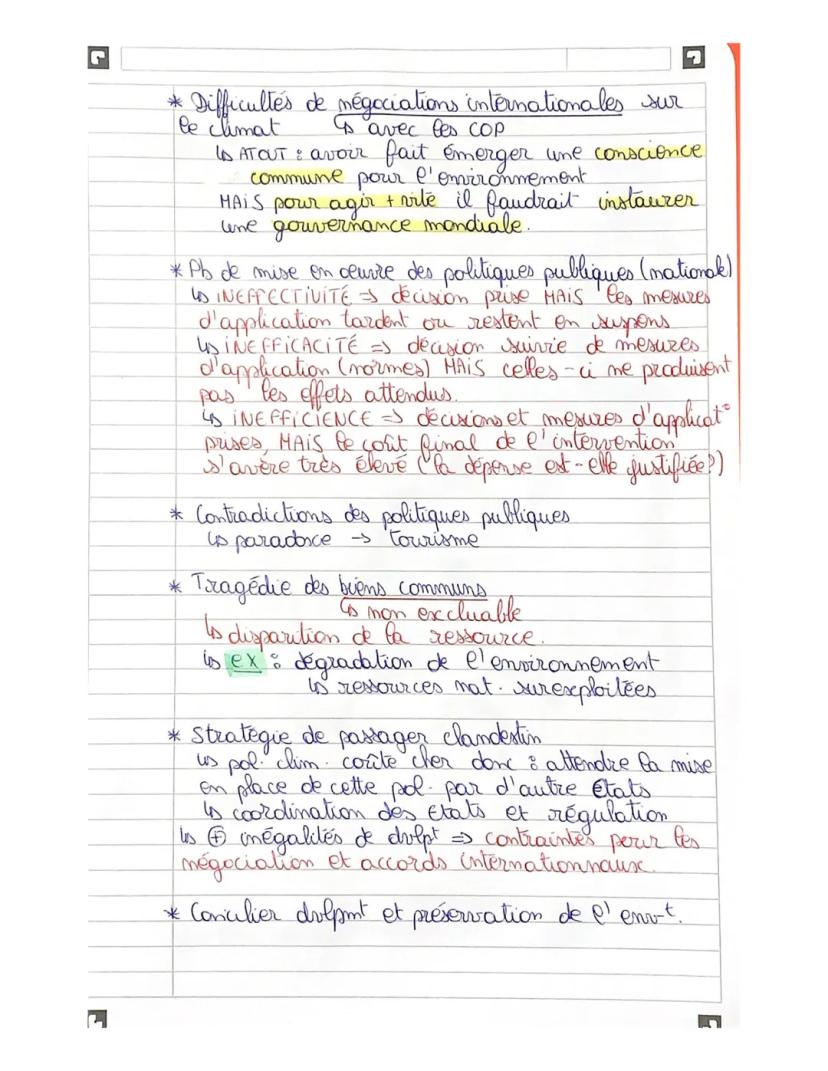 * Difficultés de négociations internationales sur
le climat ↳ avec les COP
↳ ATOUT : avoir fait émerger une conscience
commune pour l'environnement
MAIS pour agir + vite il faudrait instaurer
une gouvernance mondiale.
* Pb de mise en oeuvre des politiques publiques (nationale)
↳ INEFFECTIVITÉ => décision prise MAIS les mesures
d'application tardent ou restent en suspens
↳ INEFFICACITÉ => décision suivie de mesures
d'application (normes) MAIS celles-ci ne produisent
pas les effets attendus.
↳ INEFFICIENCE => décisions et mesures d'applicat°
prises, MAIS le coût final de l'intervention
s'avère très élevé (la dépense est-elle justifiée?)
* Contradictions des politiques publiques
↳ paradoxe -> tourisme
* Tragédie des biens communs
↳ non excluable
↳ disparition de la ressource.
↳ ex : dégradation de l'environnement
↳ ressources nat. surexploitées
* Stratégie de passager clandestin
↳ pol. clim. coûte cher donc : attendre la mise
en place de cette pol. par d'autre États
↳ coordination des États et régulation
↳ ⊕ inégalités de dvlpt => contraintes pour les
négociation et accords internationnaux.
* Concilier dvlpmt et préservation de l'env-t.